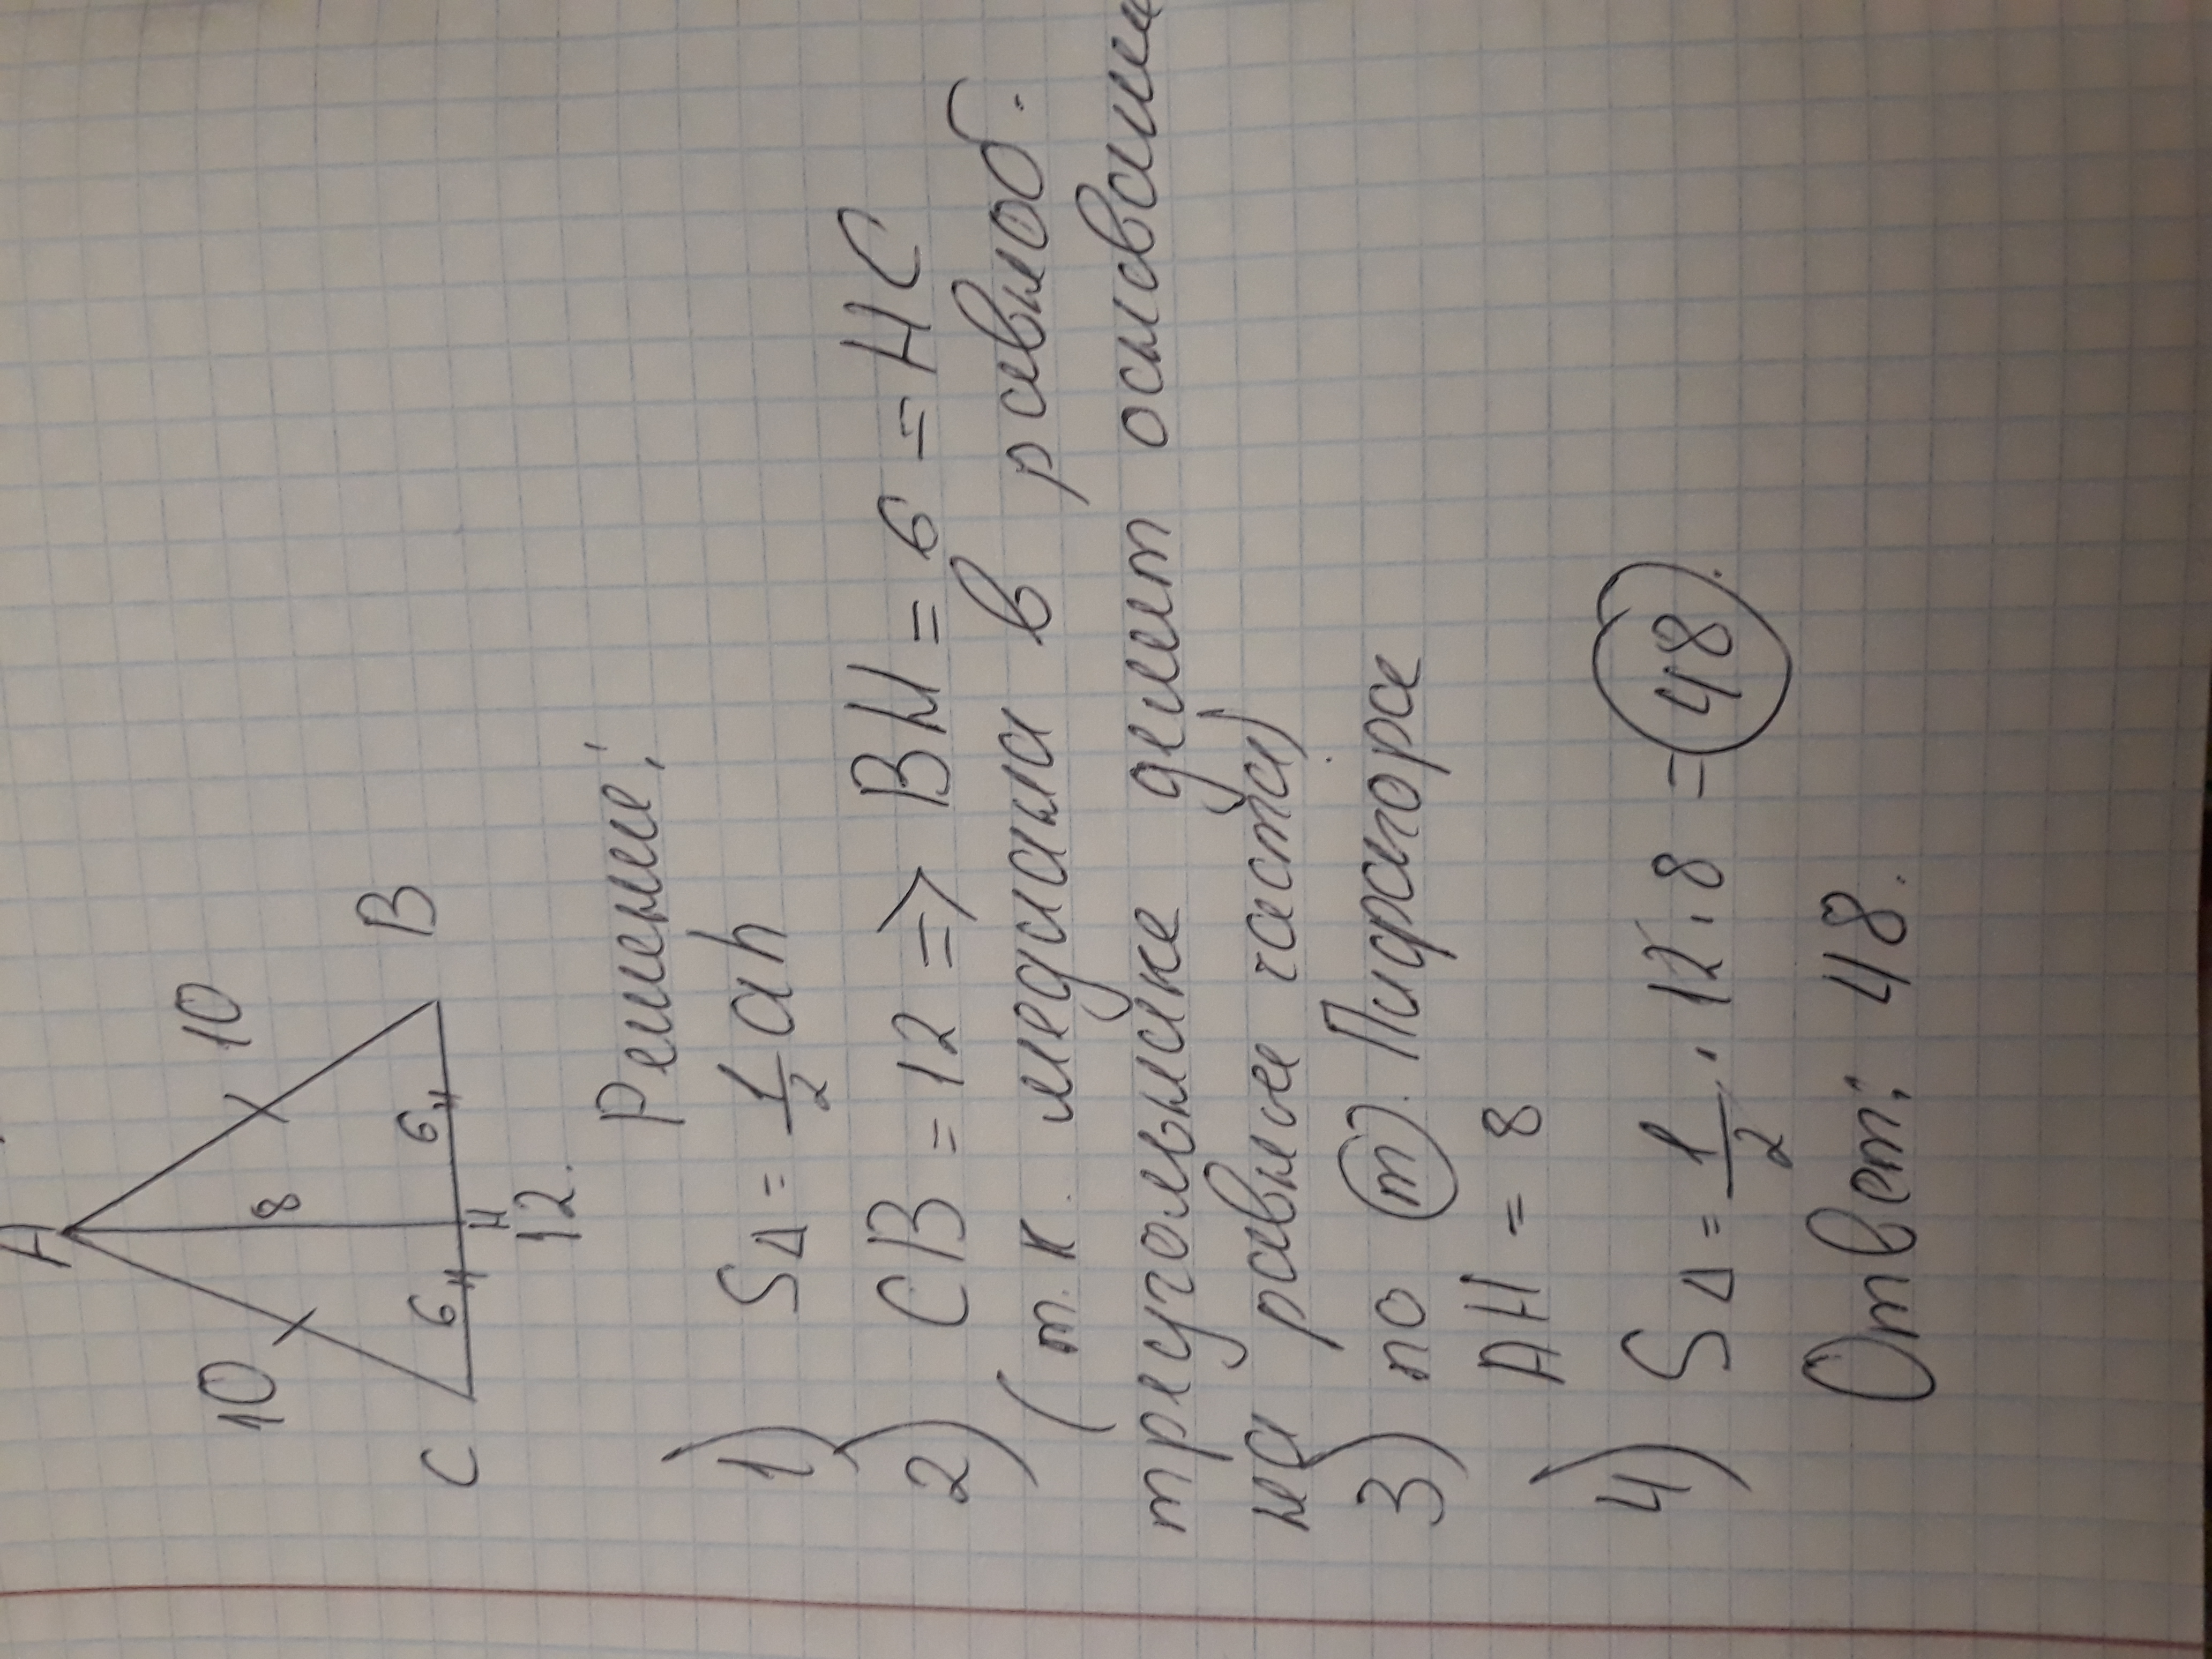 A
10
10
8
C
6
6
B
H
12.
Решение:
1) S∆ = 1/2 ah
2) CB = 12 => BH = 6 = HC
(т.к. медиана в равноб.
треугольнике делит основание
на равные части)
3) по т. Пифагора
AH = 8
4) S∆ = 1/2 · 12 · 8 = 48.
Ответ: 48.